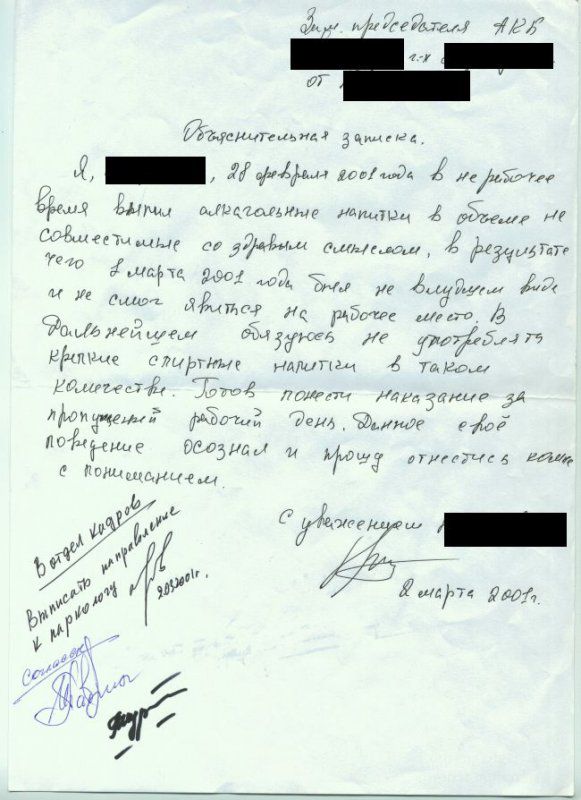 Зам. председателя АКБ
г-х
от
Объяснительная записка.
Я, , 28 февраля 2001 года в не рабочее
время выпил алкагольные напитки в объеме не
совместимые со здравым смыслом, в результате
чего 1 марта 2001 года был не в лудшем виде
и не смог явиться на рабочее место. В
дальнейшем обязуюсь не употреблять
крепкие спиртные напитки в таком
количестве. Готов понести наказание за
пропущеный рабочий день. Данное своё
поведение осознал и прошу отнестись ко мне
с пониманием.
С уважением
2 марта 2001г.
В отдел кадров
Выписать направление
к наркологу
2.03.2001г.
согласен